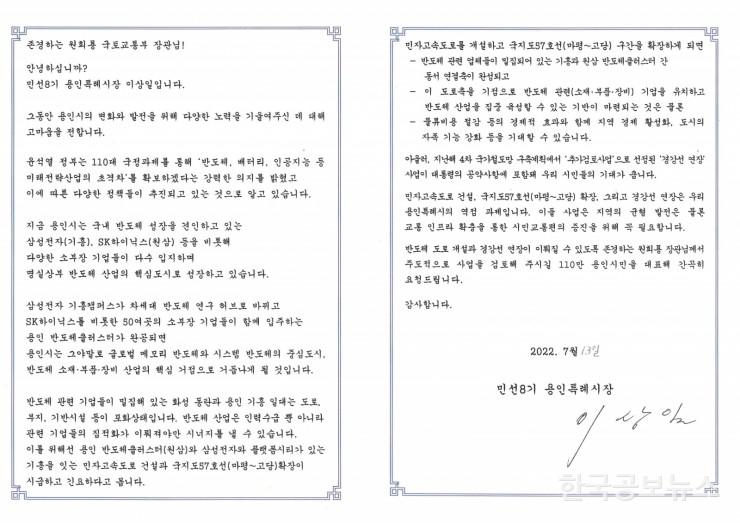 존경하는 원희룡 국토교통부 장관님!
안녕하십니까?
민선8기 용인특례시장 이상일입니다.
그동안 용인시의 변화와 발전을 위해 다양한 노력을 기울여주신 데 대해
고마움을 전합니다.
윤석열 정부는 110대 국정과제를 통해 '반도체, 배터리, 인공지능 등
미래전략산업의 초격차'를 확보하겠다는 강력한 의지를 밝혔고
이에 따른 다양한 정책들이 추진되고 있는 것으로 알고 있습니다.
지금 용인시는 국내 반도체 성장을 견인하고 있는
삼성전자(기흥), SK하이닉스(원삼) 등을 비롯해
다양한 소부장 기업들이 다수 입지하며
명실상부 반도체 산업의 핵심도시로 성장하고 있습니다.
삼성전자 기흥캠퍼스가 차세대 반도체 연구 허브로 바뀌고
SK하이닉스를 비롯한 50여곳의 소부장 기업들이 함께 입주하는
용인 반도체클러스터가 완공되면
용인시는 그야말로 글로벌 메모리 반도체와 시스템 반도체의 중심도시,
반도체 소재·부품·장비 산업의 핵심 거점으로 거듭나게 될 것입니다.
반도체 관련 기업들이 밀집해 있는 화성 동탄과 용인 기흥 일대는 도로,
부지, 기반시설 등이 포화상태입니다. 반도체 산업은 인력수급 뿐 아니라
관련 기업들의 집적화가 이뤄져야만 시너지를 낼 수 있습니다.
이를 위해선 용인 반도체클러스터(원삼)와 삼성전자와 플랫폼시티가 있는
기흥을 잇는 민자고속도로 건설과 국지도57호선(마평~고당)확장이
시급하고 긴요하다고 봅니다.
민자고속도로를 개설하고 국지도57호선(마평~고당) 구간을 확장하게 되면
- 반도체 관련 업체들이 밀집되어 있는 기흥과 원삼 반도체클러스터 간
동서 연결축이 완성되고
- 이 도로축을 거점으로 반도체 관련(소재·부품·장비) 기업을 유치하고
반도체 산업을 집중 육성할 수 있는 기반이 마련되는 것은 물론
- 물류비용 절감 등의 경제적 효과와 함께 지역 경제 활성화, 도시의
자족 기능 강화 등을 기대할 수 있습니다.
아울러, 지난해 4차 국가철도망 구축계획에서 '추가검토사업'으로 선정된 '경강선 연장'
사업이 대통령의 공약사항에 포함돼 우리 시민들의 기대가 큽니다.
민자고속도로 건설, 국지도57호선(마평~고당) 확장, 그리고 경강선 연장은 우리
용인특례시의 역점 과제입니다. 이들 사업은 지역의 균형 발전은 물론
교통 인프라 확충을 통한 시민교통편의 증진을 위해 꼭 필요합니다.
반도체 도로 개설과 경강선 연장이 이뤄질 수 있도록 존경하는 원희룡 장관님께서
주도적으로 사업을 검토해 주시길 110만 용인시민을 대표해 간곡히
요청드립니다.
감사합니다.
2022. 7월 13일
민선8기 용인특례시장
이상일
한국공보뉴스